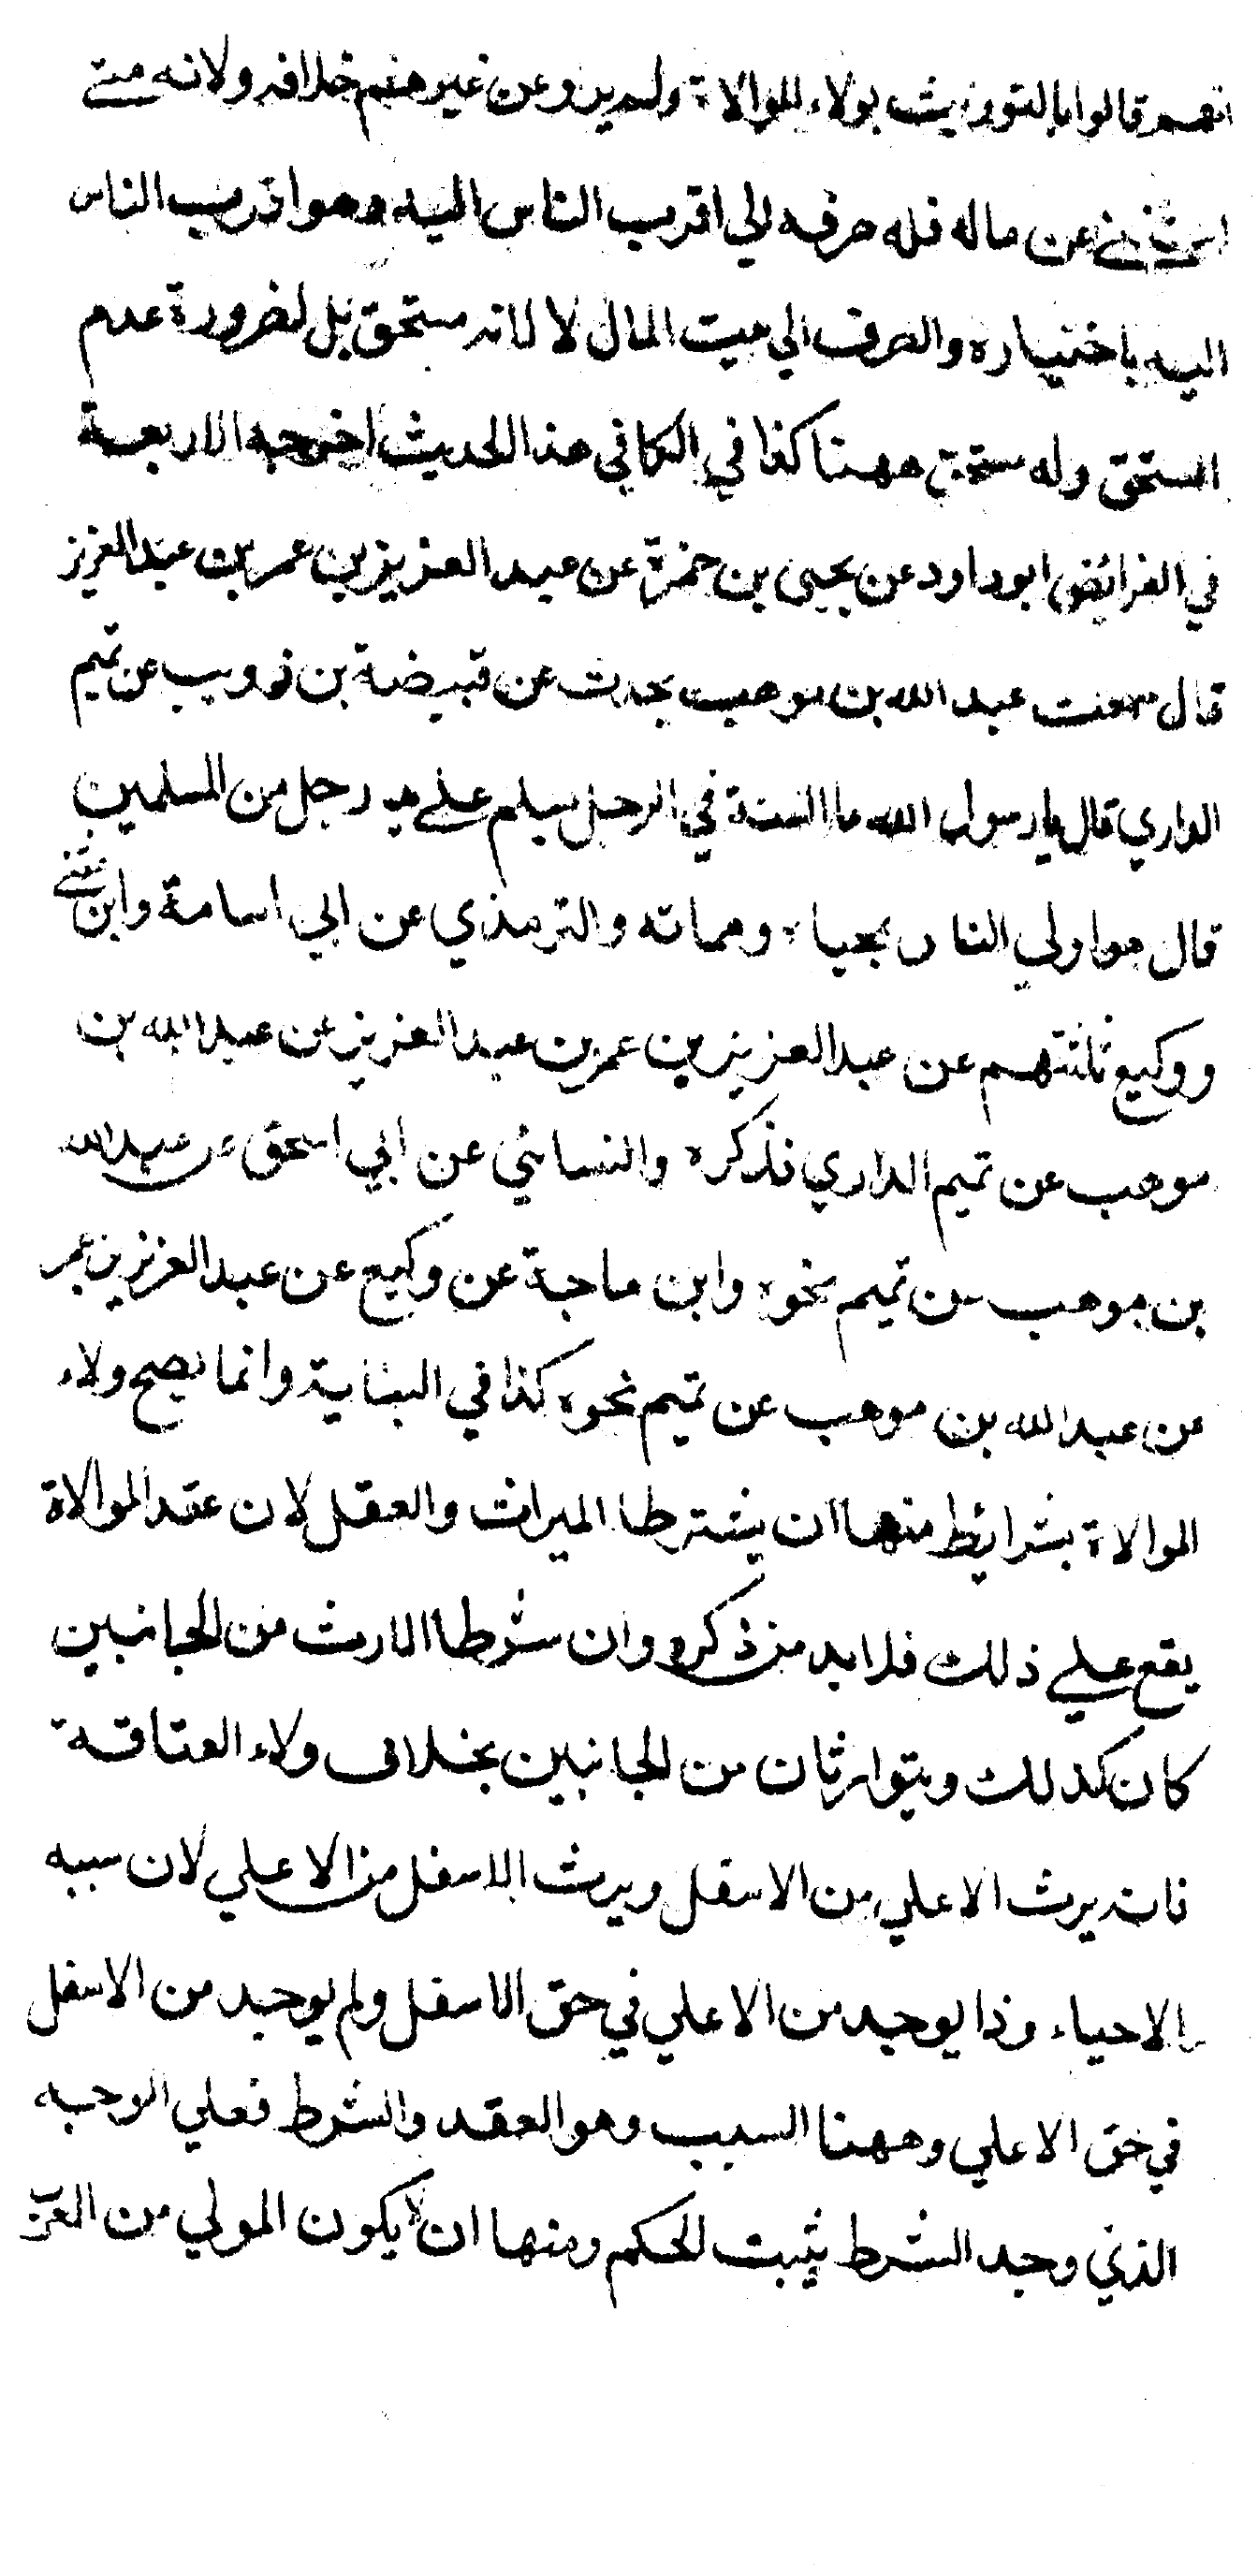 انهم قالوا بالتوريث بولاء الموالاة ولم يرو عن غيرهم خلافه ولانه متى
استغنى عن ماله فله صرفه الي اقرب الناس اليه وهو اقرب الناس
اليه باختياره والصرف الي بيت المال لا لانه مستحق بل لضرورة عدم
المستحق وله مستحق ههنا كذا في الكافي هذا الحديث اخرجه الاربعة
في الفرائض ابو داود عن يحيى بن حمزة عن عبد العزيز بن عمر بن عبد العزيز
قال سمعت عبد الله بن موهب يحدث عن قبيضة بن ذويب عن تميم
الداري قال يا رسول الله ما السنة في الرجل يسلم علي يد رجل من المسلمين
قال هو اولي الناس بمحياه ومماته والترمذي عن ابي اسامة وابن
ووكيع ثلثتهم عن عبد العزيز بن عمر بن عبد العزيز عن عبد الله بن
موهب عن تميم الداري فذكره والنسائي عن ابي اسحق عن عبد الله
بن موهب عن تميم نحوه وابن ماجة عن وكيع عن عبد العزيز بن عمر
عن عبد الله بن موهب عن تميم نحوه كذا في البناية وانما يصح ولاء
الموالاة بشرائط منها ان يشترطا الميراث والعقل لان عقد الموالاة
يقع علي ذلك فلا بد من ذكره وان شرطا الارث من الجانبين
كان كذلك ويتوارثان من الجانبين بخلاف ولاء العتاقة
فانه يرث الاعلي من الاسفل ويرث الاسفل من الاعلي لان سببه
الاحياء وذا يوجد من الاعلي في حق الاسفل ولم يوجد من الاسفل
في حق الاعلي وههنا السبب وهو العقد والشرط فعلي الوجه
الذي وجد الشرط يثبت الحكم ومنها ان لا يكون المولي من العرب